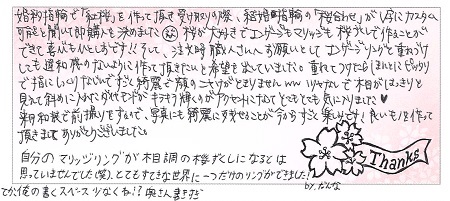 婚約指輪で「紅桜」を作って頂き受け取りの際、結婚指輪の「桜合わせ」が SVにカスタム
可能と聞いて即購入を決めました 桜が大好きでエンゲージもマリッジも桜づくしで作ることが
できて喜びもひとしおです!!そして、注文時職人さんへお願いとして エンゲージリングと重ねづけ
しても違和感のないように作って頂きたいと希望を出していました。重ねてつけたら ほんとにピッタリ
で指にしっくりないでずっと綺麗で顔のニヤけがとまりませんww ツヤなしで木目がはっきりと
見えて斜めに入れたダイヤモンドが キラキラ輝くのがアクセントになってとてもとても気に入りました♥
来月和装で前撮りをするので、写真にも綺麗に残せることが今からずごく楽しみです!良いモノを作って
頂きましてありがとうございました。
自分のマリッジリングが木目調の桜づくしになるとは
思っていませんでした(笑)、とてもすてきな世界に一つだけのリングができました!
by.だんな
てか、俺の書くスペース少なくね!?奥さん書きすぎ
Thanks